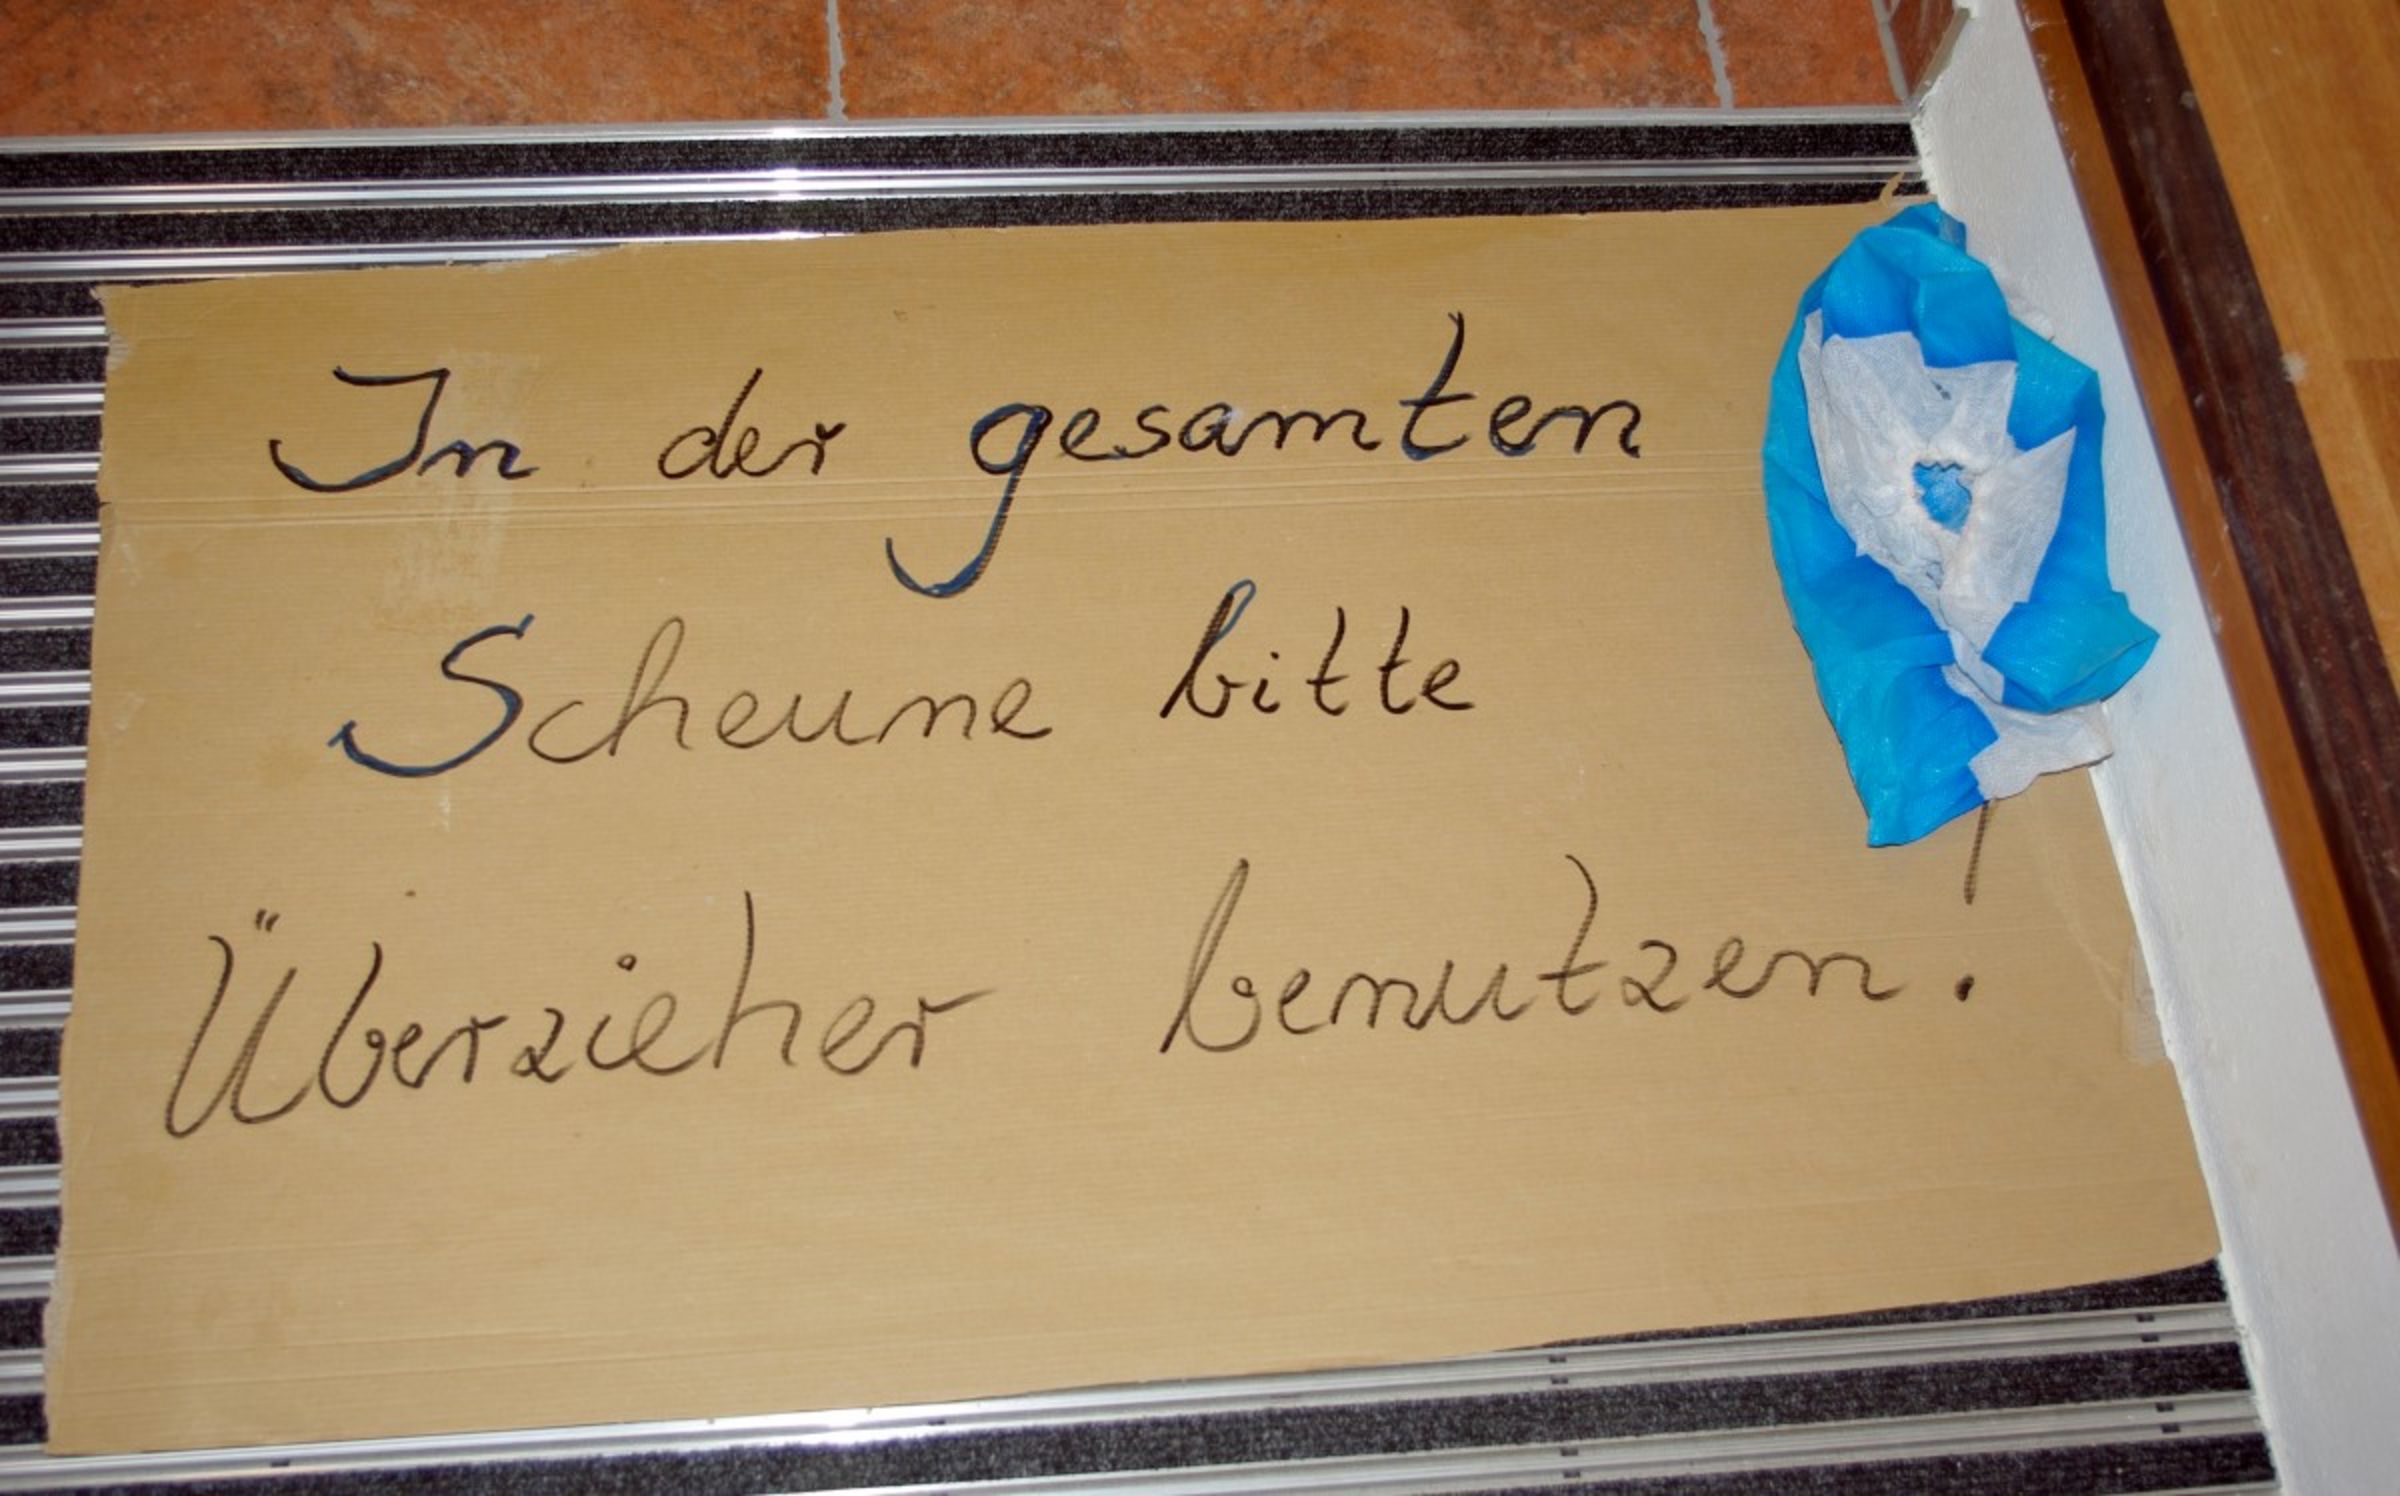 In der gesamten
Scheune bitte
Überzieher benutzen!